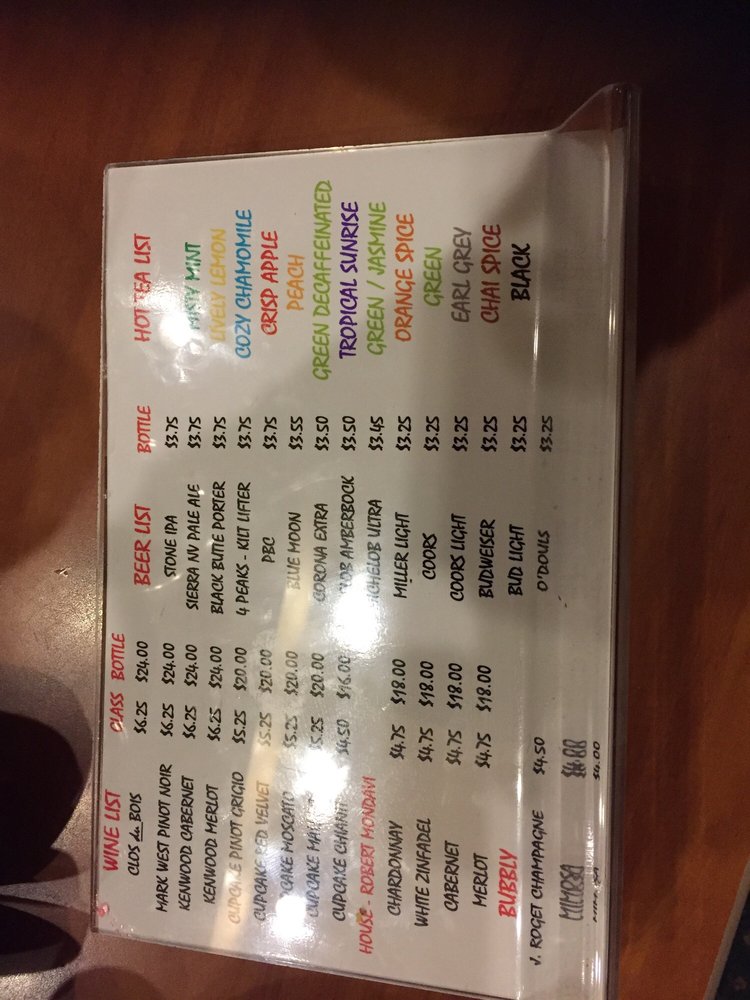 WINE LIST GLASS BOTTLE
CLOS du BOIS $6.25 $24.00
MARK WEST PINOT NOIR $6.25 $24.00
KENWOOD CABERNET $6.25 $24.00
KENWOOD MERLOT $6.25 $24.00
CUPCAKE PINOT GRIGIO $5.25 $20.00
CUPCAKE RED VELVET $5.25 $20.00
CUPCAKE MOSCATO $5.25 $20.00
CUPCAKE $5.25 $20.00
CUPCAKE CHIANTI $4.50 $16.00
HOUSE - ROBERT MONDAVI
CHARDONNAY $4.75 $18.00
WHITE ZINFADEL $4.75 $18.00
CABERNET $4.75 $18.00
MERLOT $4.75 $18.00
BUBBLY
J. ROGET CHAMPAGNE $4.50
MIMOSA $4.00
BEER LIST BOTTLE
STONE IPA $3.75
SIERRA NV PALE ALE $3.75
BLACK BUTTE PORTER $3.75
4 PEAKS - KILT LIFTER $3.75
PBC $3.75
BLUE MOON $3.55
CORONA EXTRA $3.50
AMBERBOCK $3.50
MICHELOB ULTRA $3.45
MILLER LIGHT $3.25
COORS $3.25
COORS LIGHT $3.25
BUDWEISER $3.25
BUD LIGHT $3.25
O'DOULS $3.25
HOT TEA LIST
MISTY MINT
LIVELY LEMON
COZY CHAMOMILE
CRISP APPLE
PEACH
GREEN DECAFFEINATED
TROPICAL SUNRISE
GREEN / JASMINE
ORANGE SPICE
GREEN
EARL GREY
CHAI SPICE
BLACK